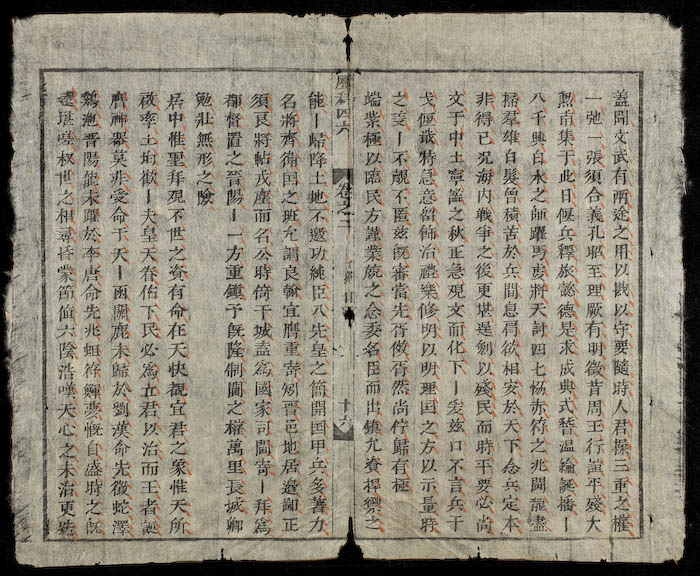 蓋聞文武有兩途之用以戡以守要隨時人君操三重之權
一弛一張須合義孔昭至理厥有明徵昔周王行誼平殘大
勲甫集于此日偃兵釋旅懿德是求成典式稽温綸誕播丨
八千興白水之師躍馬虎將天討四七暢赤符之兆鬪龍盡
掃羣雄自髮曾積苦於兵間息肩欲相安於天下念兵定本
非得已况海内戦争之後更堪逞劍以殘民而時平要必尚
文于中土寧謐之秋正急覌文而化下丨爰兹口不言兵干
戈偃戢特急意儒飾治禮樂修明以明理国之方以示量時
之丨不覿不匿兹旣審當先胥傚胥然尚停歸有極
端紫極以臨民方謹業兢之念委名臣而出鎮允賚捍禦之
能丨歸降土地不邀功純臣八先皇之簡開国甲兵多著力
名將齊衛国之班允謂良翰宜膺重寄矧晋邑地居邉鄙正
須良將帖戎塵而名公時倚干城盍為國家司閫寄丨拜為
都督置之晋陽丨一方重鎮予旣隆制閫之權萬里長城卿
勉壯無形之險
居中惟聖拜殊不世之資有命在天快覩宜君之象惟天所
啓率土均歡丨夫皇天眷佑下民必為立君以治而王者誕
膺神器莫非受命于天丨函關鹿未歸於劉漢命先徵蛇澤
鷄池晋陽龍未躍於李唐命先兆蛆符輝夢慨自盛時之旣
遠堪嗟叔世之相尋昏蒙節値六陰浩嘆天心之未治更迭
卷之二
十六